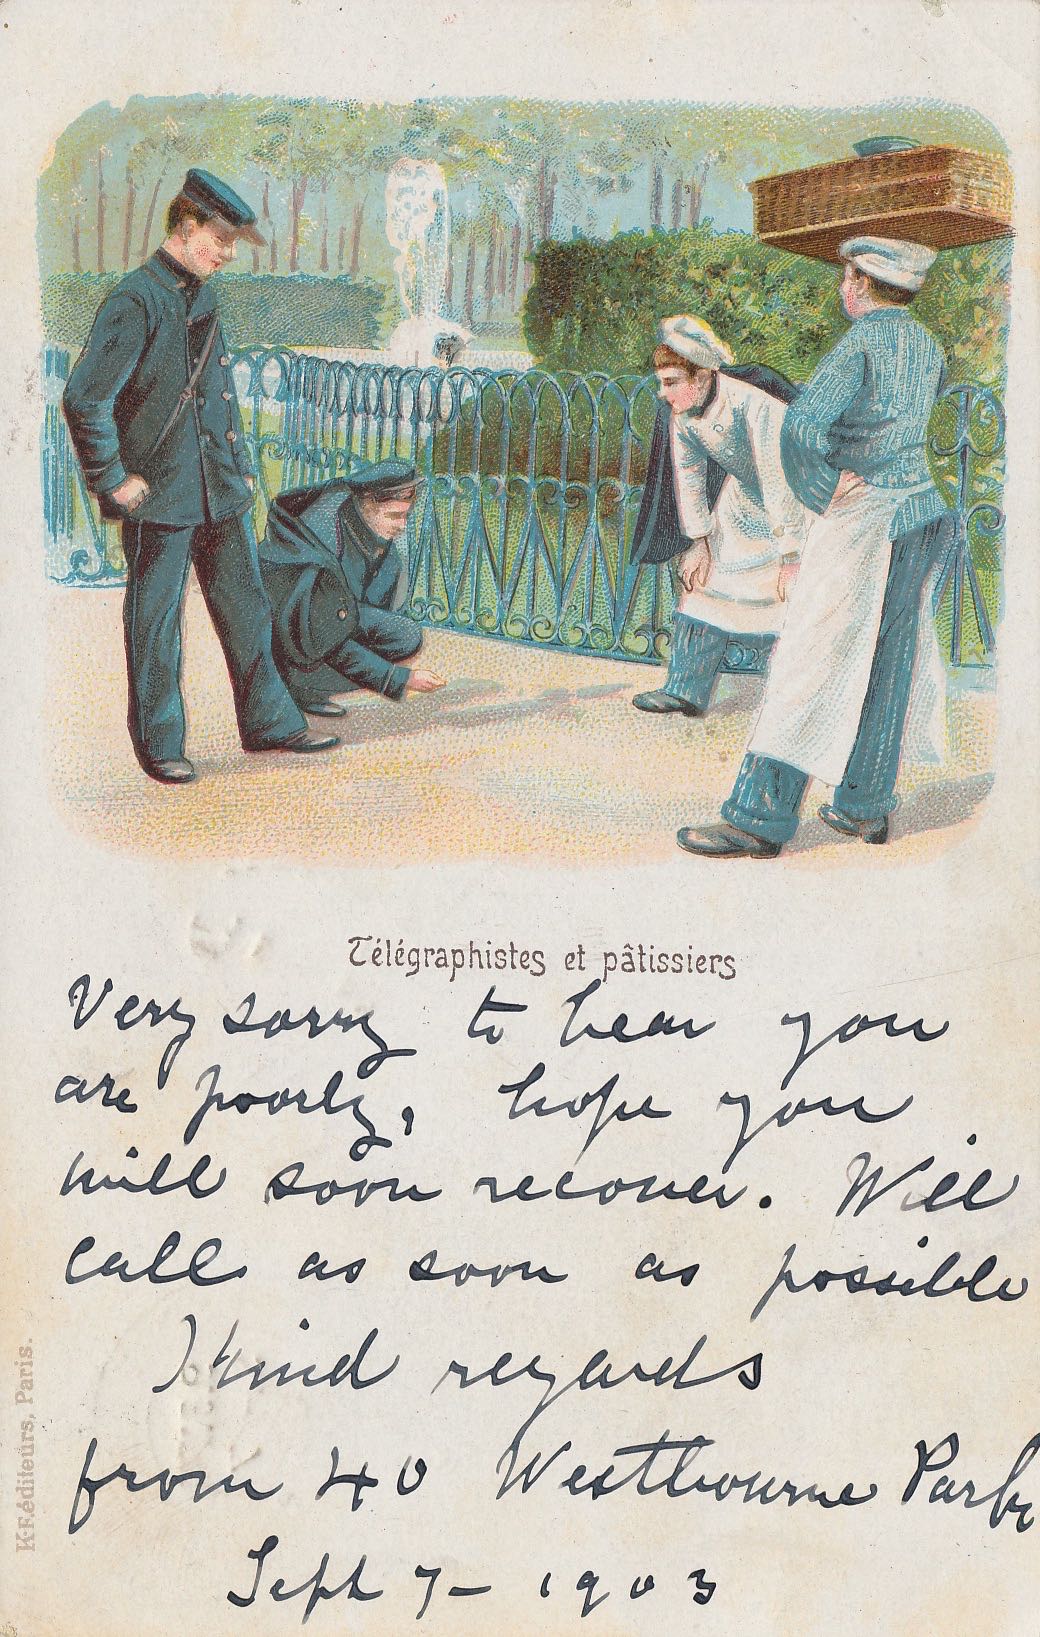 Télégraphistes et pâtissiers
Very sorry to hear you
are poorly, hope you
will soon recover. Will
call as soon as possible
Kind regards
from 40 Westbourne Park
Sept 7 - 1903
K·F. éditeurs, Paris.